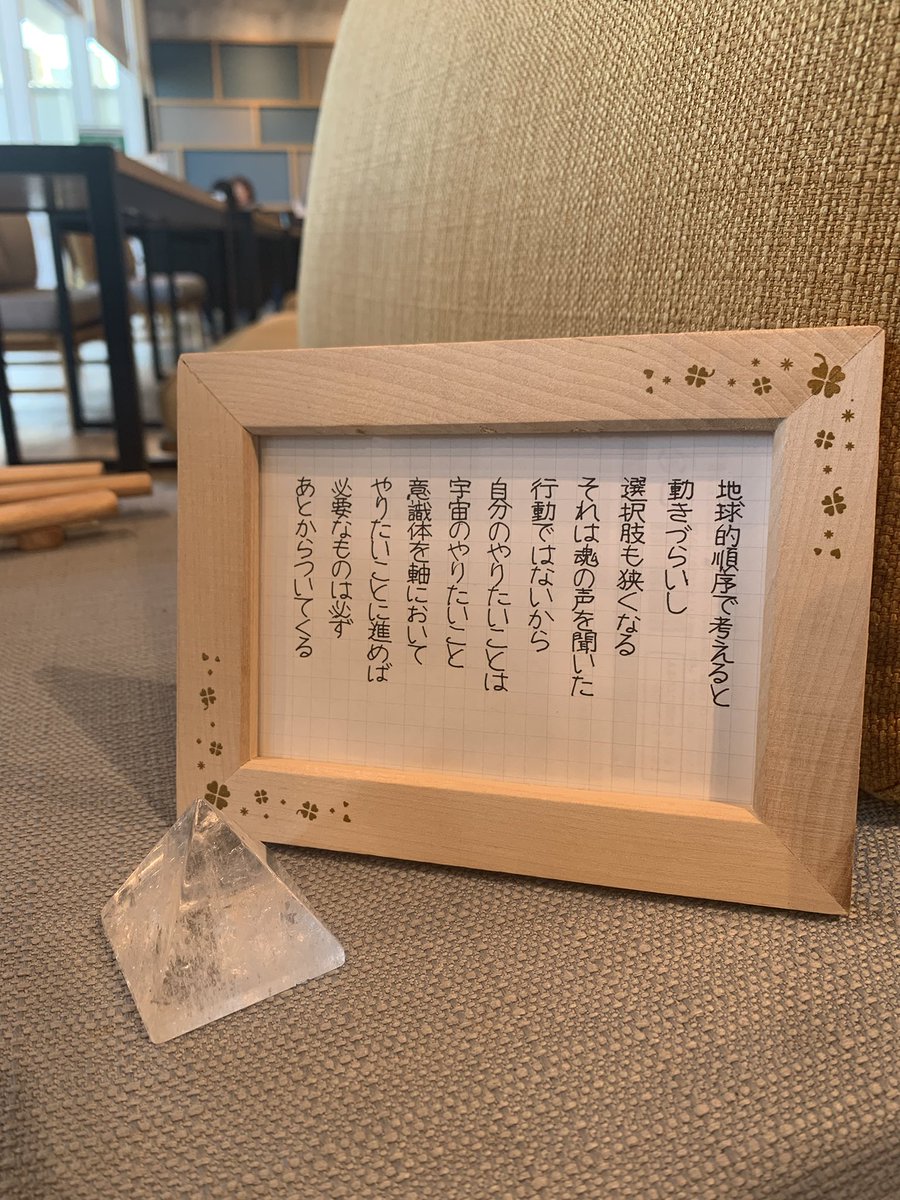 地球的順序で考えると
動きづらいし
選択肢も狭くなる
それは魂の声を聞いた
行動ではないから
自分のやりたいことは
宇宙のやりたいこと
意識体を軸において
やりたいことに進めば
必要なものは必ず
あとからついてくる